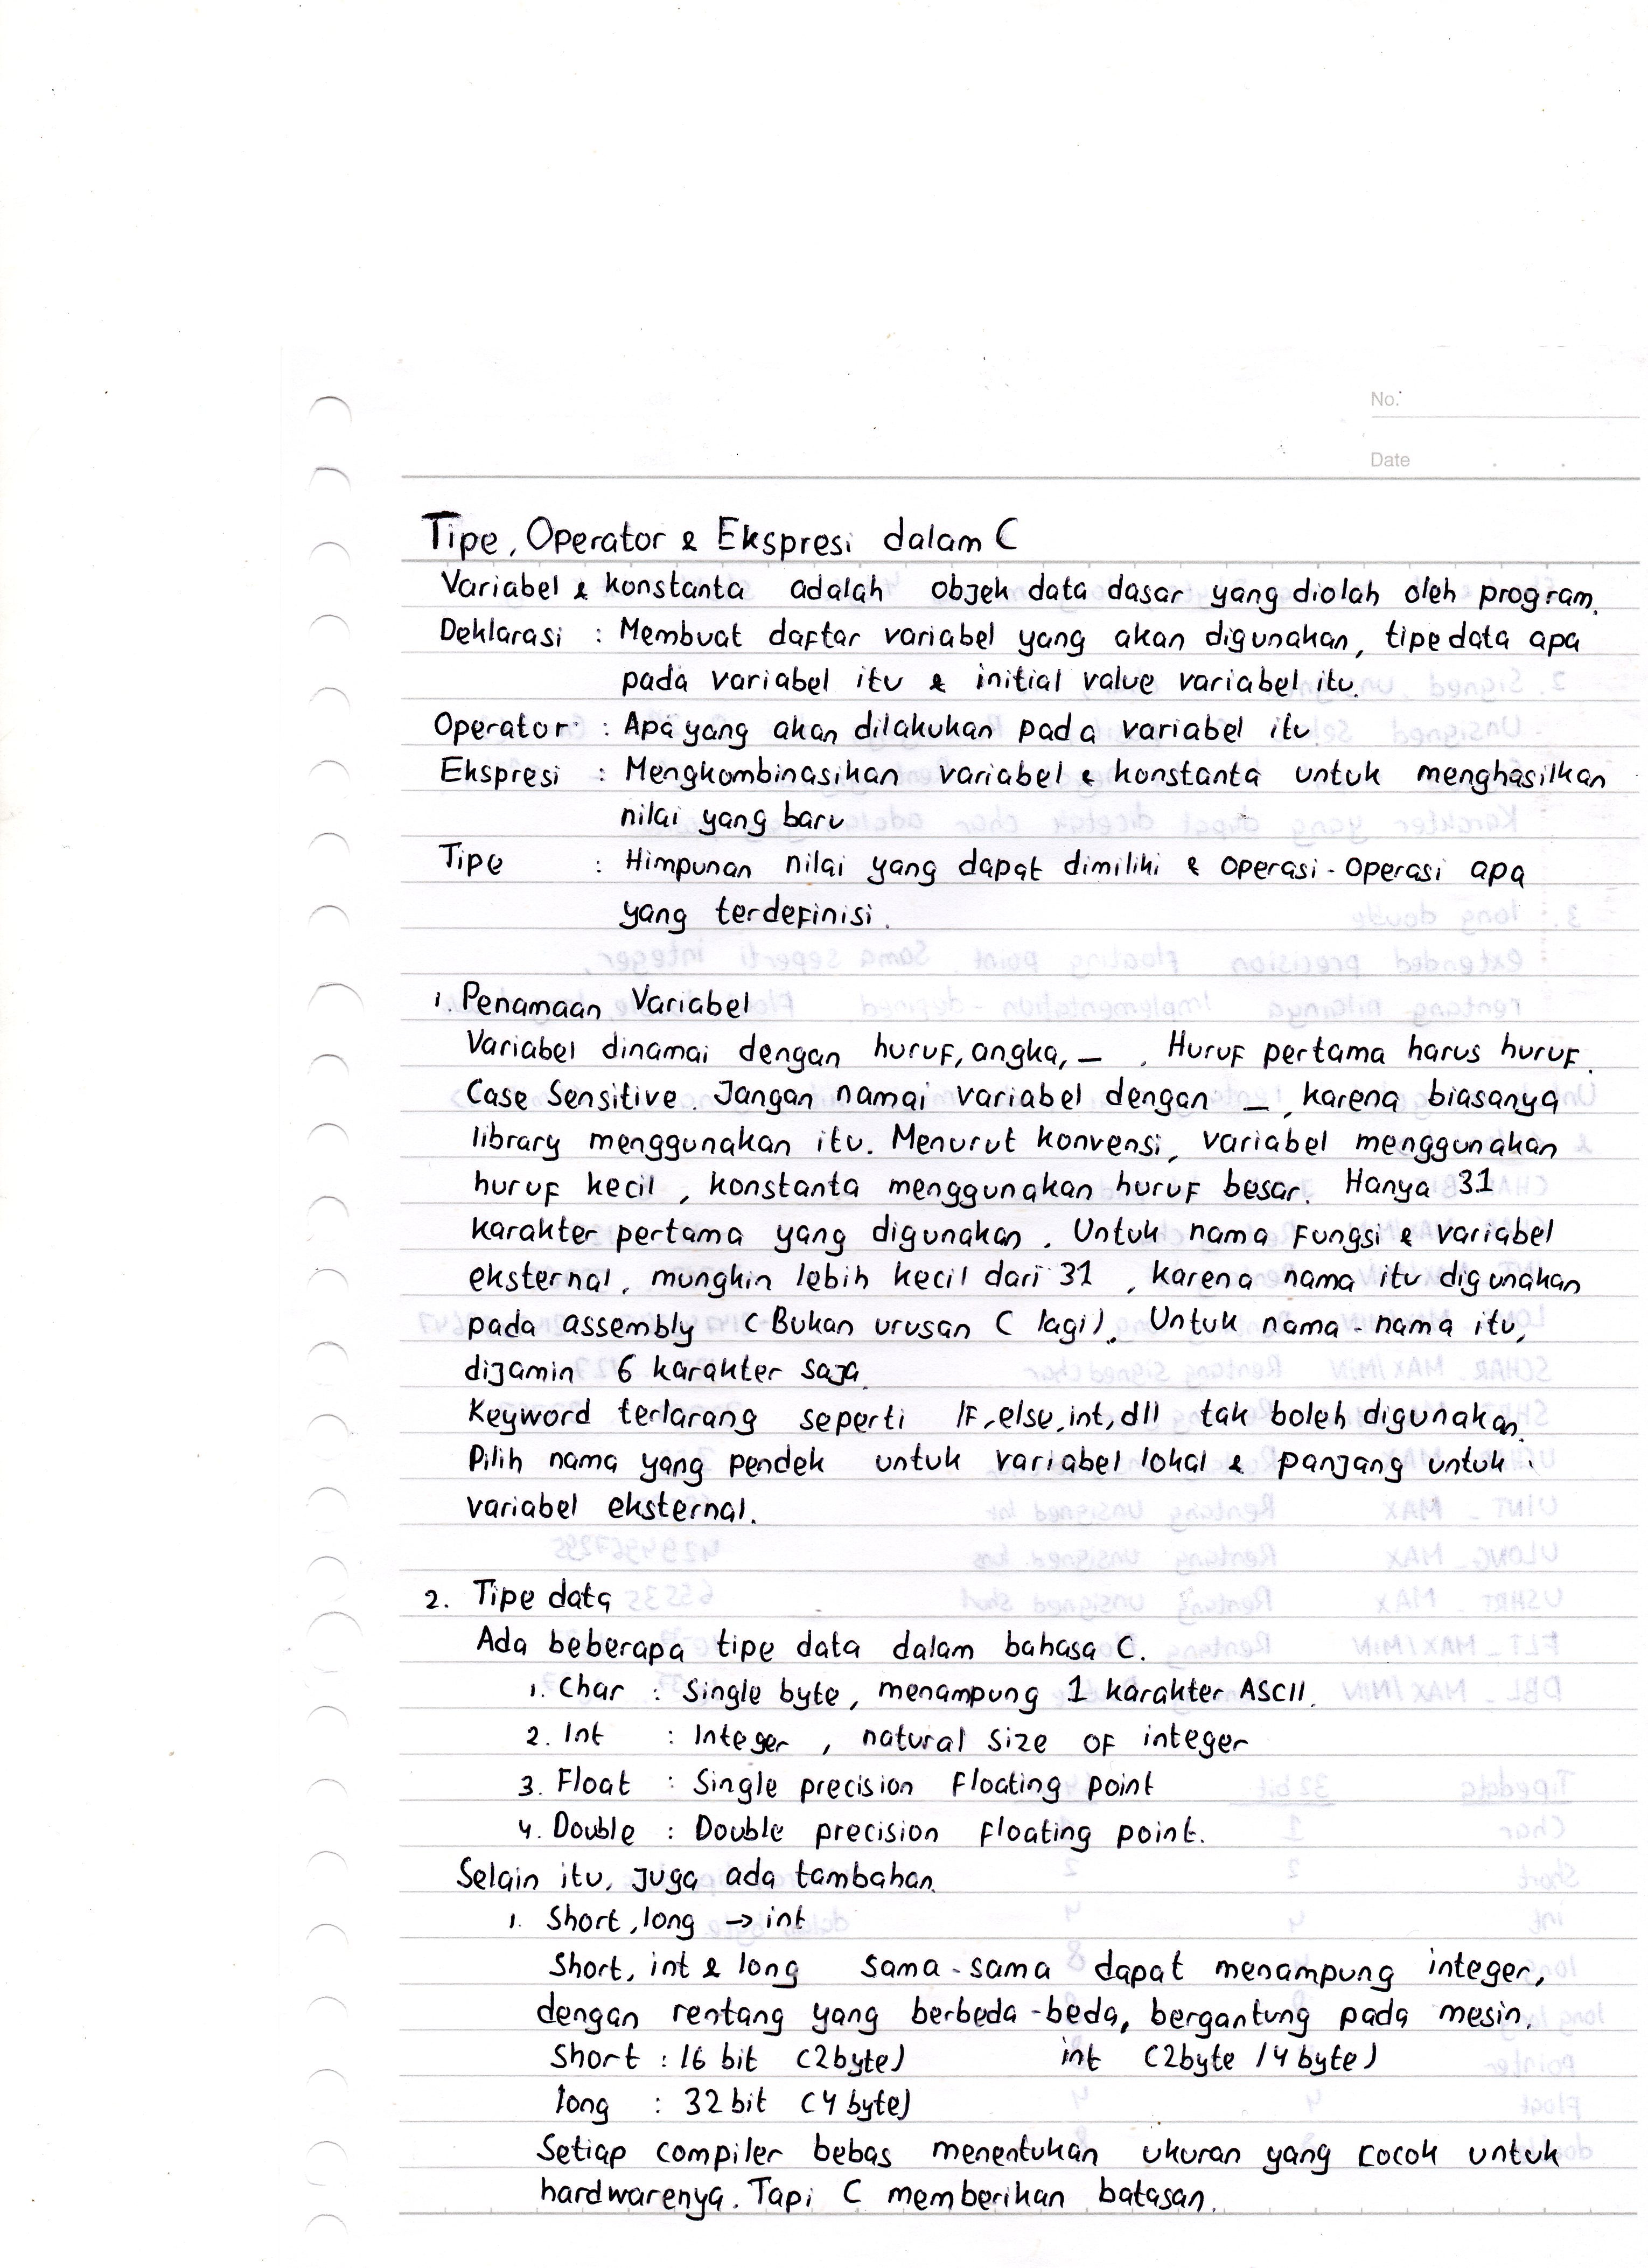 No.
Date
Tipe, Operator & Ekspresi dalam C
Variabel & konstanta adalah objek data dasar yang diolah oleh program.
Deklarasi : Membuat daftar variabel yang akan digunakan, tipe data apa
pada variabel itu & initial value variabel itu.
Operator : Apa yang akan dilakukan pada variabel itu
Ekspresi : Mengkombinasikan variabel & konstanta untuk menghasilkan
nilai yang baru
Tipe : Himpunan nilai yang dapat dimiliki & operasi-operasi apa
yang terdefinisi.
1. Penamaan Variabel
Variabel dinamai dengan huruf, angka, _ . Huruf pertama harus huruf.
Case Sensitive. Jangan namai variabel dengan _, karena biasanya
library menggunakan itu. Menurut konvensi, variabel menggunakan
huruf kecil, konstanta menggunakan huruf besar. Hanya 31
karakter pertama yang digunakan. Untuk nama fungsi & variabel
eksternal, mungkin lebih kecil dari 31, karena nama itu digunakan
pada assembly (Bukan urusan C lagi). Untuk nama-nama itu,
dijamin 6 karakter saja.
Keyword terlarang seperti if, else, int, dll tak boleh digunakan.
Pilih nama yang pendek untuk variabel lokal & panjang untuk
variabel eksternal.
2. Tipe data
Ada beberapa tipe data dalam bahasa C.
1. Char : Single byte, menampung 1 karakter ASCII.
2. Int : Integer, natural size of integer
3. Float : Single precision floating point
4. Double : Double precision floating point.
Selain itu, juga ada tambahan.
1. Short, long → int
Short, int & long sama-sama dapat menampung integer,
dengan rentang yang berbeda-beda, bergantung pada mesin.
Short : 16 bit (2byte) int (2byte / 4 byte)
long : 32 bit (4 byte)
Setiap compiler bebas menentukan ukuran yang cocok untuk
hardwarenya. Tapi C memberikan batasan.